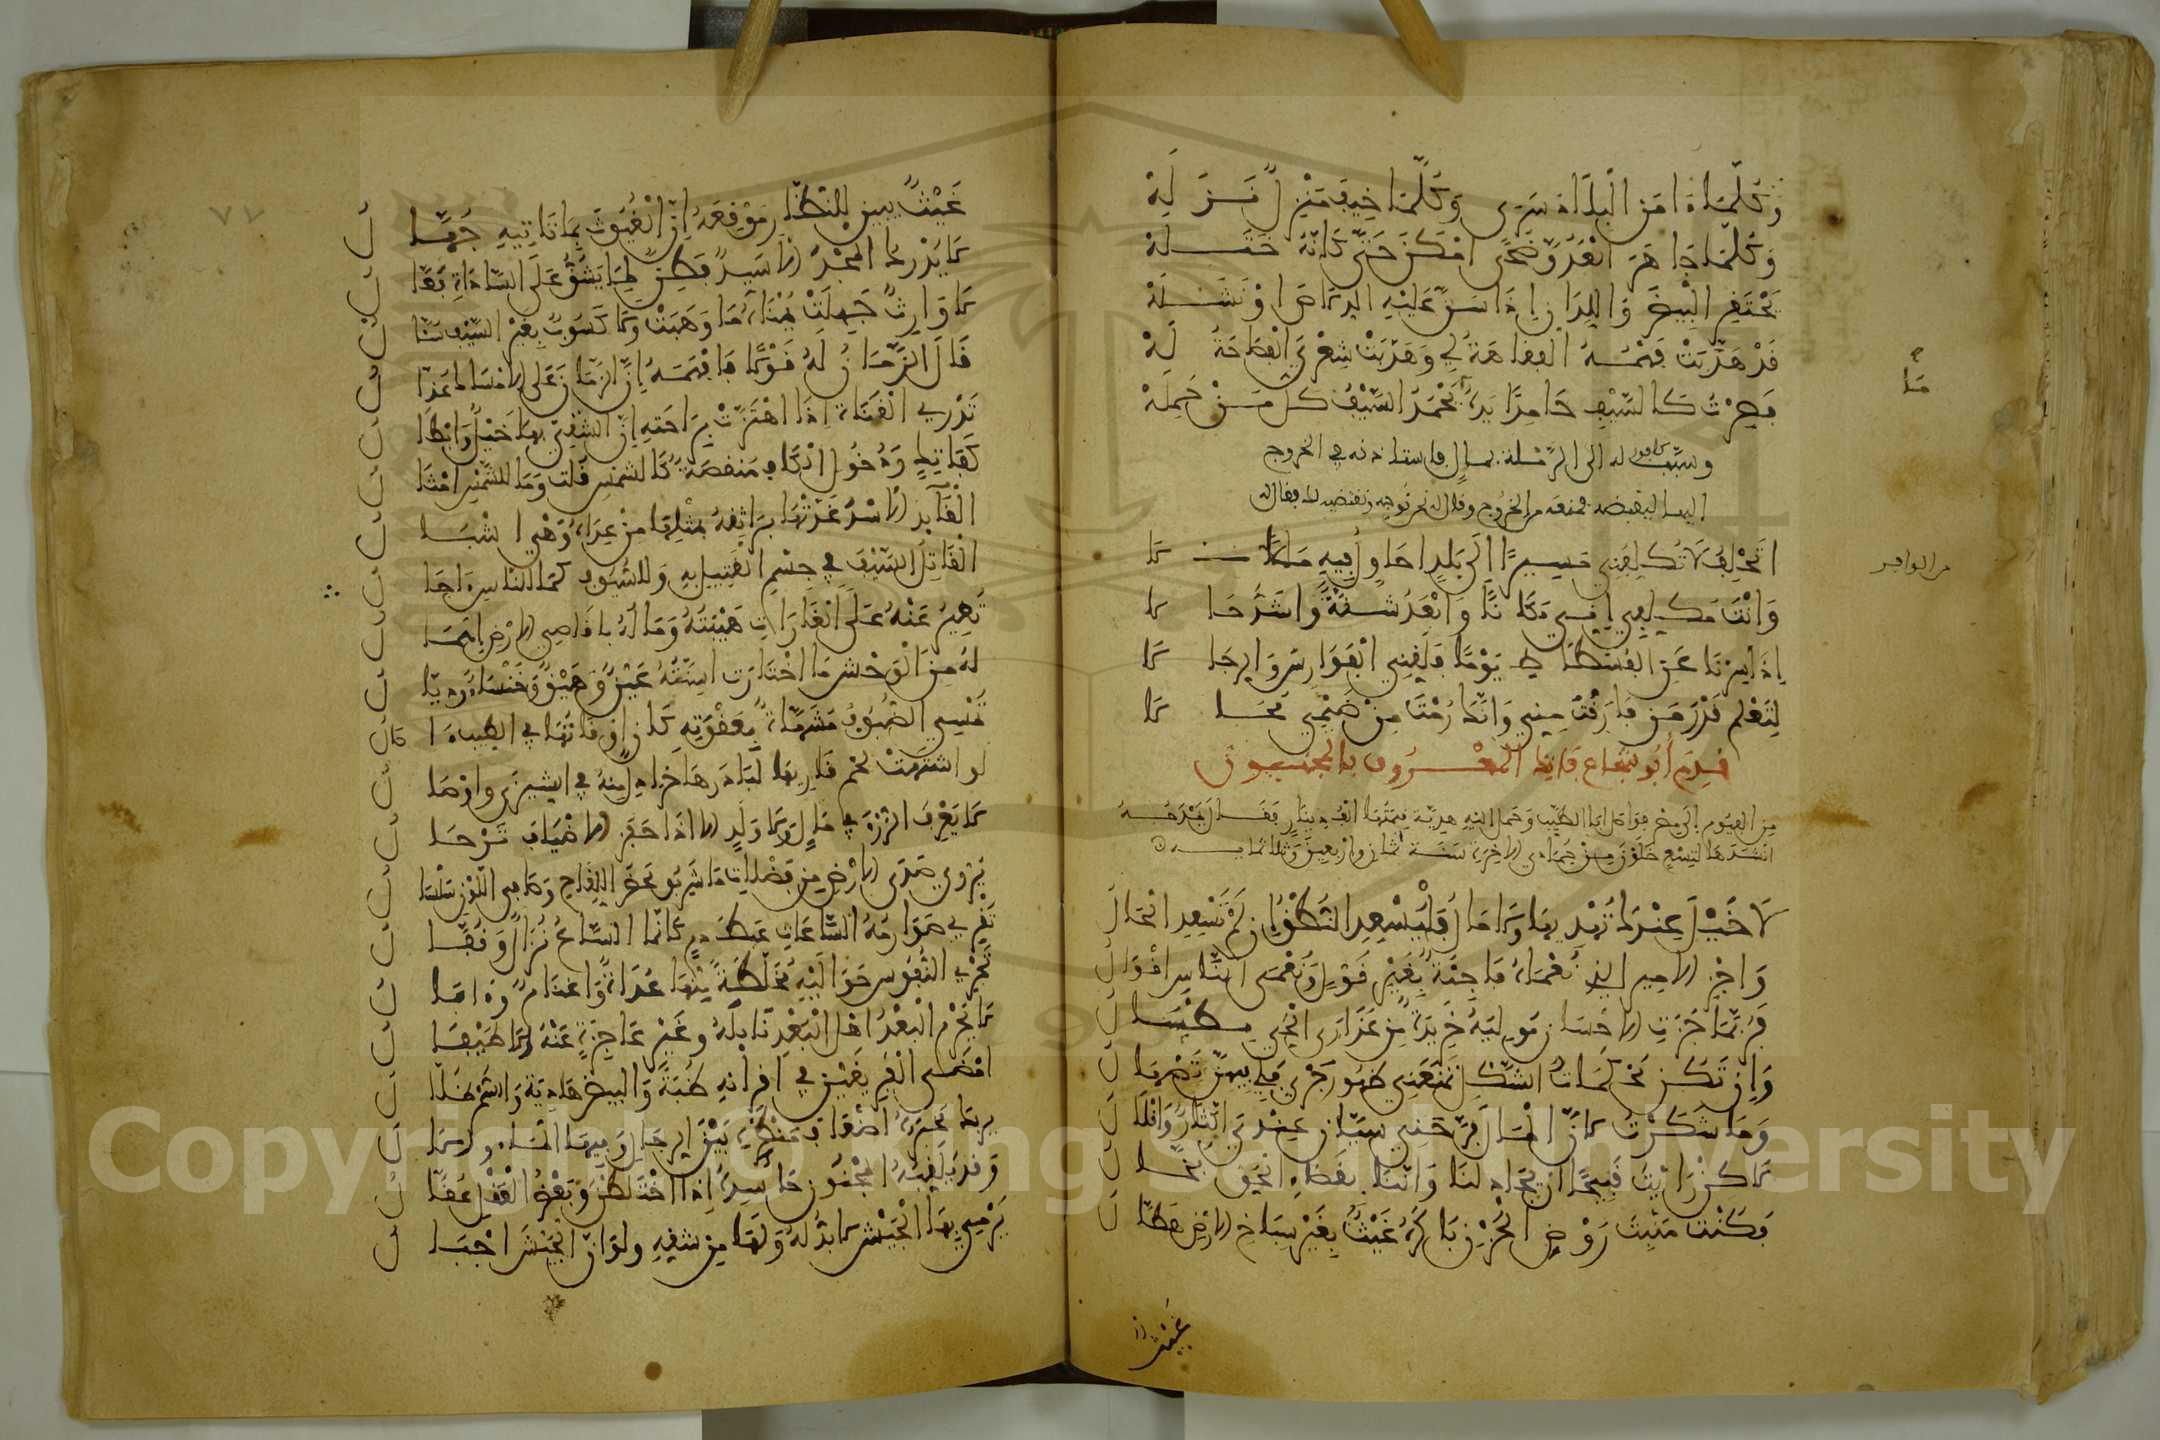 وكلما آمن البلاد سرى وكلما خيف منزل نزله
وكلما جاهر العدو ضحى امكن حتى كأنه ختله
يحتقر البيض واللدان إذا سن عليه الدلاص او نثله
قد هذبت فهمه الفقاهة لي وهذبت شعري الفصاحة له
فصرت كالسيف حامدا يده لا يحمد السيف كل من حمله
وسبب كافور له الى الرملة بمال فاستاذنه في الخروج
اليها ليقبضه فمنعه من الخروج وقال له نحن نوجه ونقتضيه لك فقال له
من الوافر
اتحلف لا تكلفني مسيرا الى بلد احاول فيه مالا
وانت مكلفي انبى مكانا وابعد شقة واشد حالا
إذا سرنا عن الفسطاط يوما فلقني الفوارس والرجالا
لتعلم قدر من فارقت مني وانك رمت من ضيمي محالا
قدم أبو شجاع فاتك المعروف بالمجنون
من الفيوم الى مصر فواصل ابا الطيب وحمل اليه هدية قيمتها الف دينار فقال يمدحه
انشدها لتسع خلون من جمادى الاخرة سنة ثمان واربعين وثلاثمائة
لا خيل عندك تهديها ولا مال فليسعد النطق إن لم تسعد الحال
واجز الامير الذي نعماه فاجئة بغير قول ونعمى الناس اقوال
فربما جزت الاحسان موليه خريدة من عذارى الحي مكسال
وإن تكن محكمات الشكل تمنعني ظهور جري فلي فيهن تصهال
وما شكرت لان المال فرحني سيان عندي إكثار وإقلال
لاكن رايت قبيحا ان يجاد لنا واننا بقضاء الحق بخال
فكنت منبت روض الحزن باكره غيث بغير سباخ الارض هطال
غيث
٧٧
غيث يبين للنظار موقعه إن الغيوث بما تاتيه جهال
لا يدرك المجد الا سيد فطن لما يشق على السادات فعال
لا وارث جهلت يمناه ما وهبت ولا كسوب بغير السيف سئال
قال الزمان له قولا فافهمه إن الزمان على الامساك عذال
تدري القناة اذا اهتزت براحته ان الشقي بها خيل وابطال
كفاتك ودخول الكاف منقصة كالشمس قلت وما للشمس امثال
القائد الاسد غذتها براثنه بمثلها من عداه وهي اشبال
القاتل السيف في جسم القتيل به وللسيوف كما للناس اجال
تغير عنه على الغارات هيبته وماله باقاصي الارض اهمال
له من الوحش ما اختارت اسنته عير وهيق وخنساء وذيال
تمسي الضيوف مشهاة بعقوته كان اوقاتها في الطيب اصال
لو اشتهت لحم قاريها لبادرها خرادل منه في الشيزى واوصال
لا يعرف الرزء في مال ولا ولد الا اذا حفز الاضياف ترحال
يروي صدى الارض من فضلات ما شربوا محض اللقاح وصافي اللون سلسال
تقري صوارمه الساعات عبط دم كانما الساع نزال وقفال
تجري النفوس حواليه مخلطة منها عداة واغنام وءابال
لا يحرم البعد اهل البعد نائله وغير عاجزة عنه الاطيفال
امضى الفريقين في اقرانه ظبة والبيض هادية والسمر ضلال
يريك مخبره اضعاف منظره بين الرجال وفيها الماء والال
وقد يلقبه المجنون حاسده إذا اختلطن وبعض العقل عقال
يرمي بها الجيش لا بد له ولها من شقه ولو ان الجيش اجبال
Copyright © King Saud University